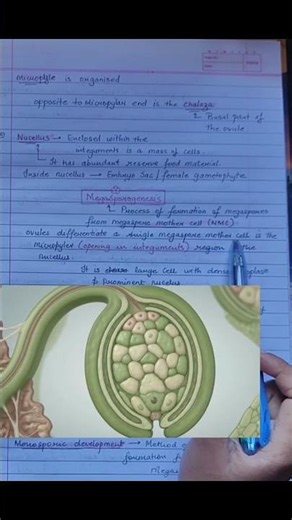 Micropyle is organised
opposite to Micropylar end is the chalaza
Basal part of
the ovule
Nucellus → Enclosed within the
integuments is a mass of cells.
It has abundant reserve food material.
Inside nucellus → Embryo Sac / female gametophyte
Megasporogenesis
Process of formation of megaspores
from megaspore mother cell (MMC).
ovules differentiate a single megaspore mother cell in the
micropylar (opening in integuments) region of the
nucellus.
It is large cell with dense
& Prominent nucleus
Monosporic development → Method of
formation